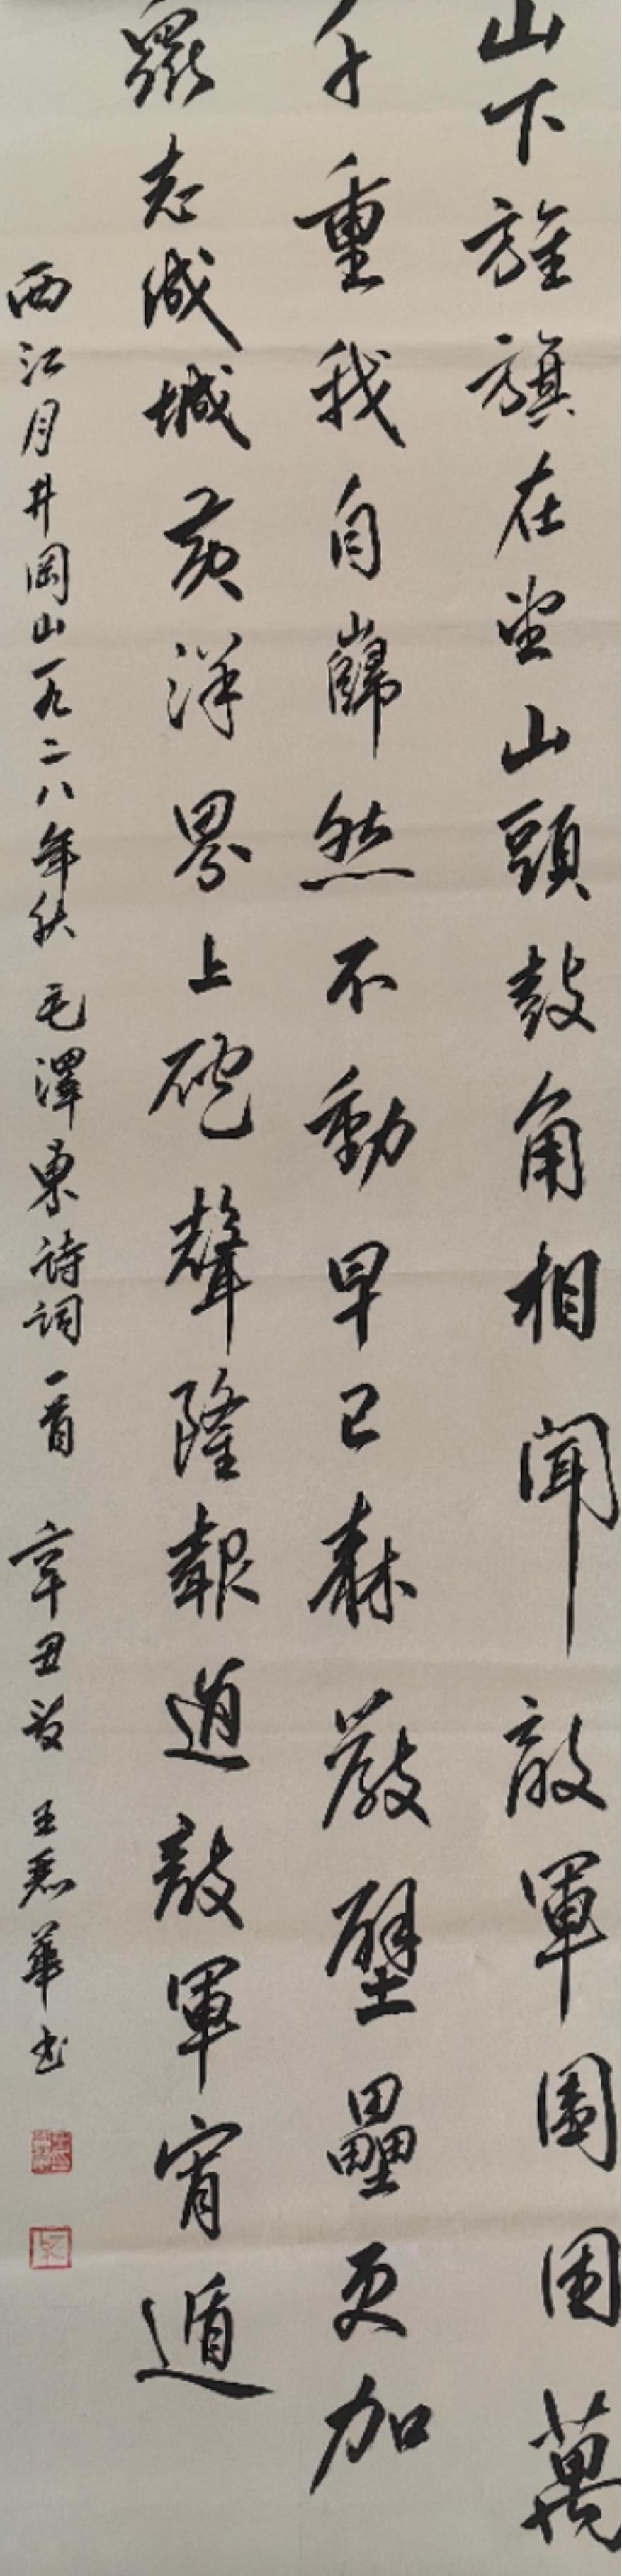 山下旌旗在望山頭鼓角相聞敵軍圍困萬
千重我自巋然不動早已森嚴壁壘更加
眾志成城黃洋界上砲聲隆報道敵軍宵遁
西江月井岡山一九二八年秋毛澤東詩詞一首辛丑於王惠華書